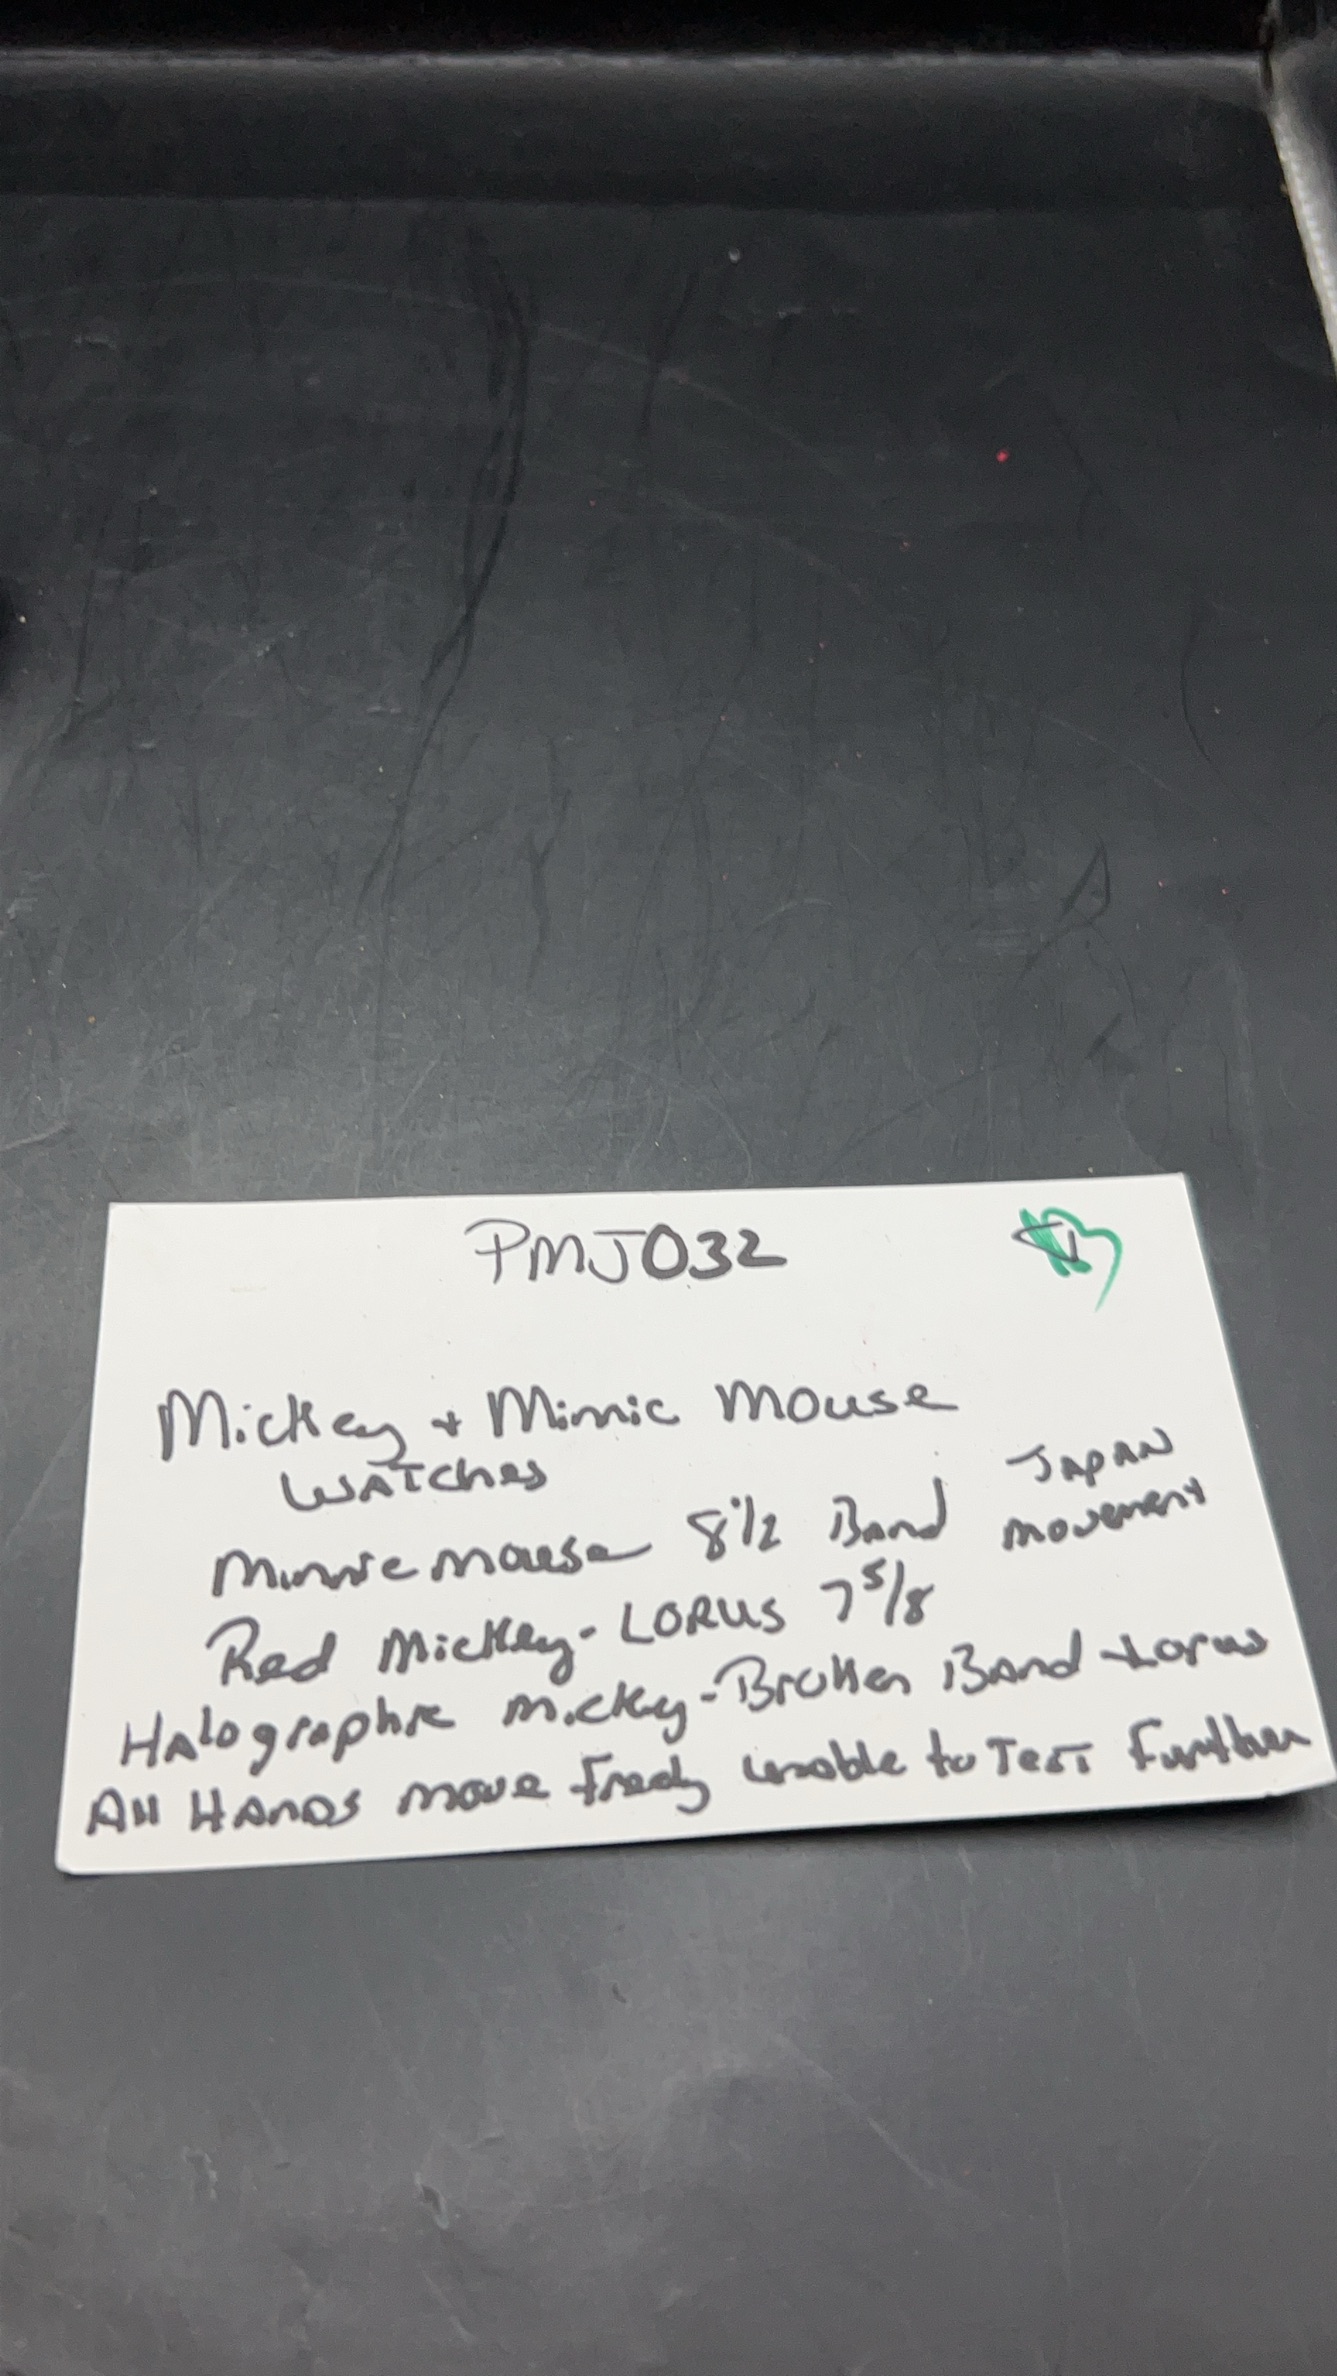 PMJ032
Mickey + Minnie Mouse
Watches
Minnie mouse 8 1/2 Band Japan movement
Red Mickey - LORUS 7 5/8
Halographic Mickey - Broken Band - Lorus
All Hands move freely unable to Test Further